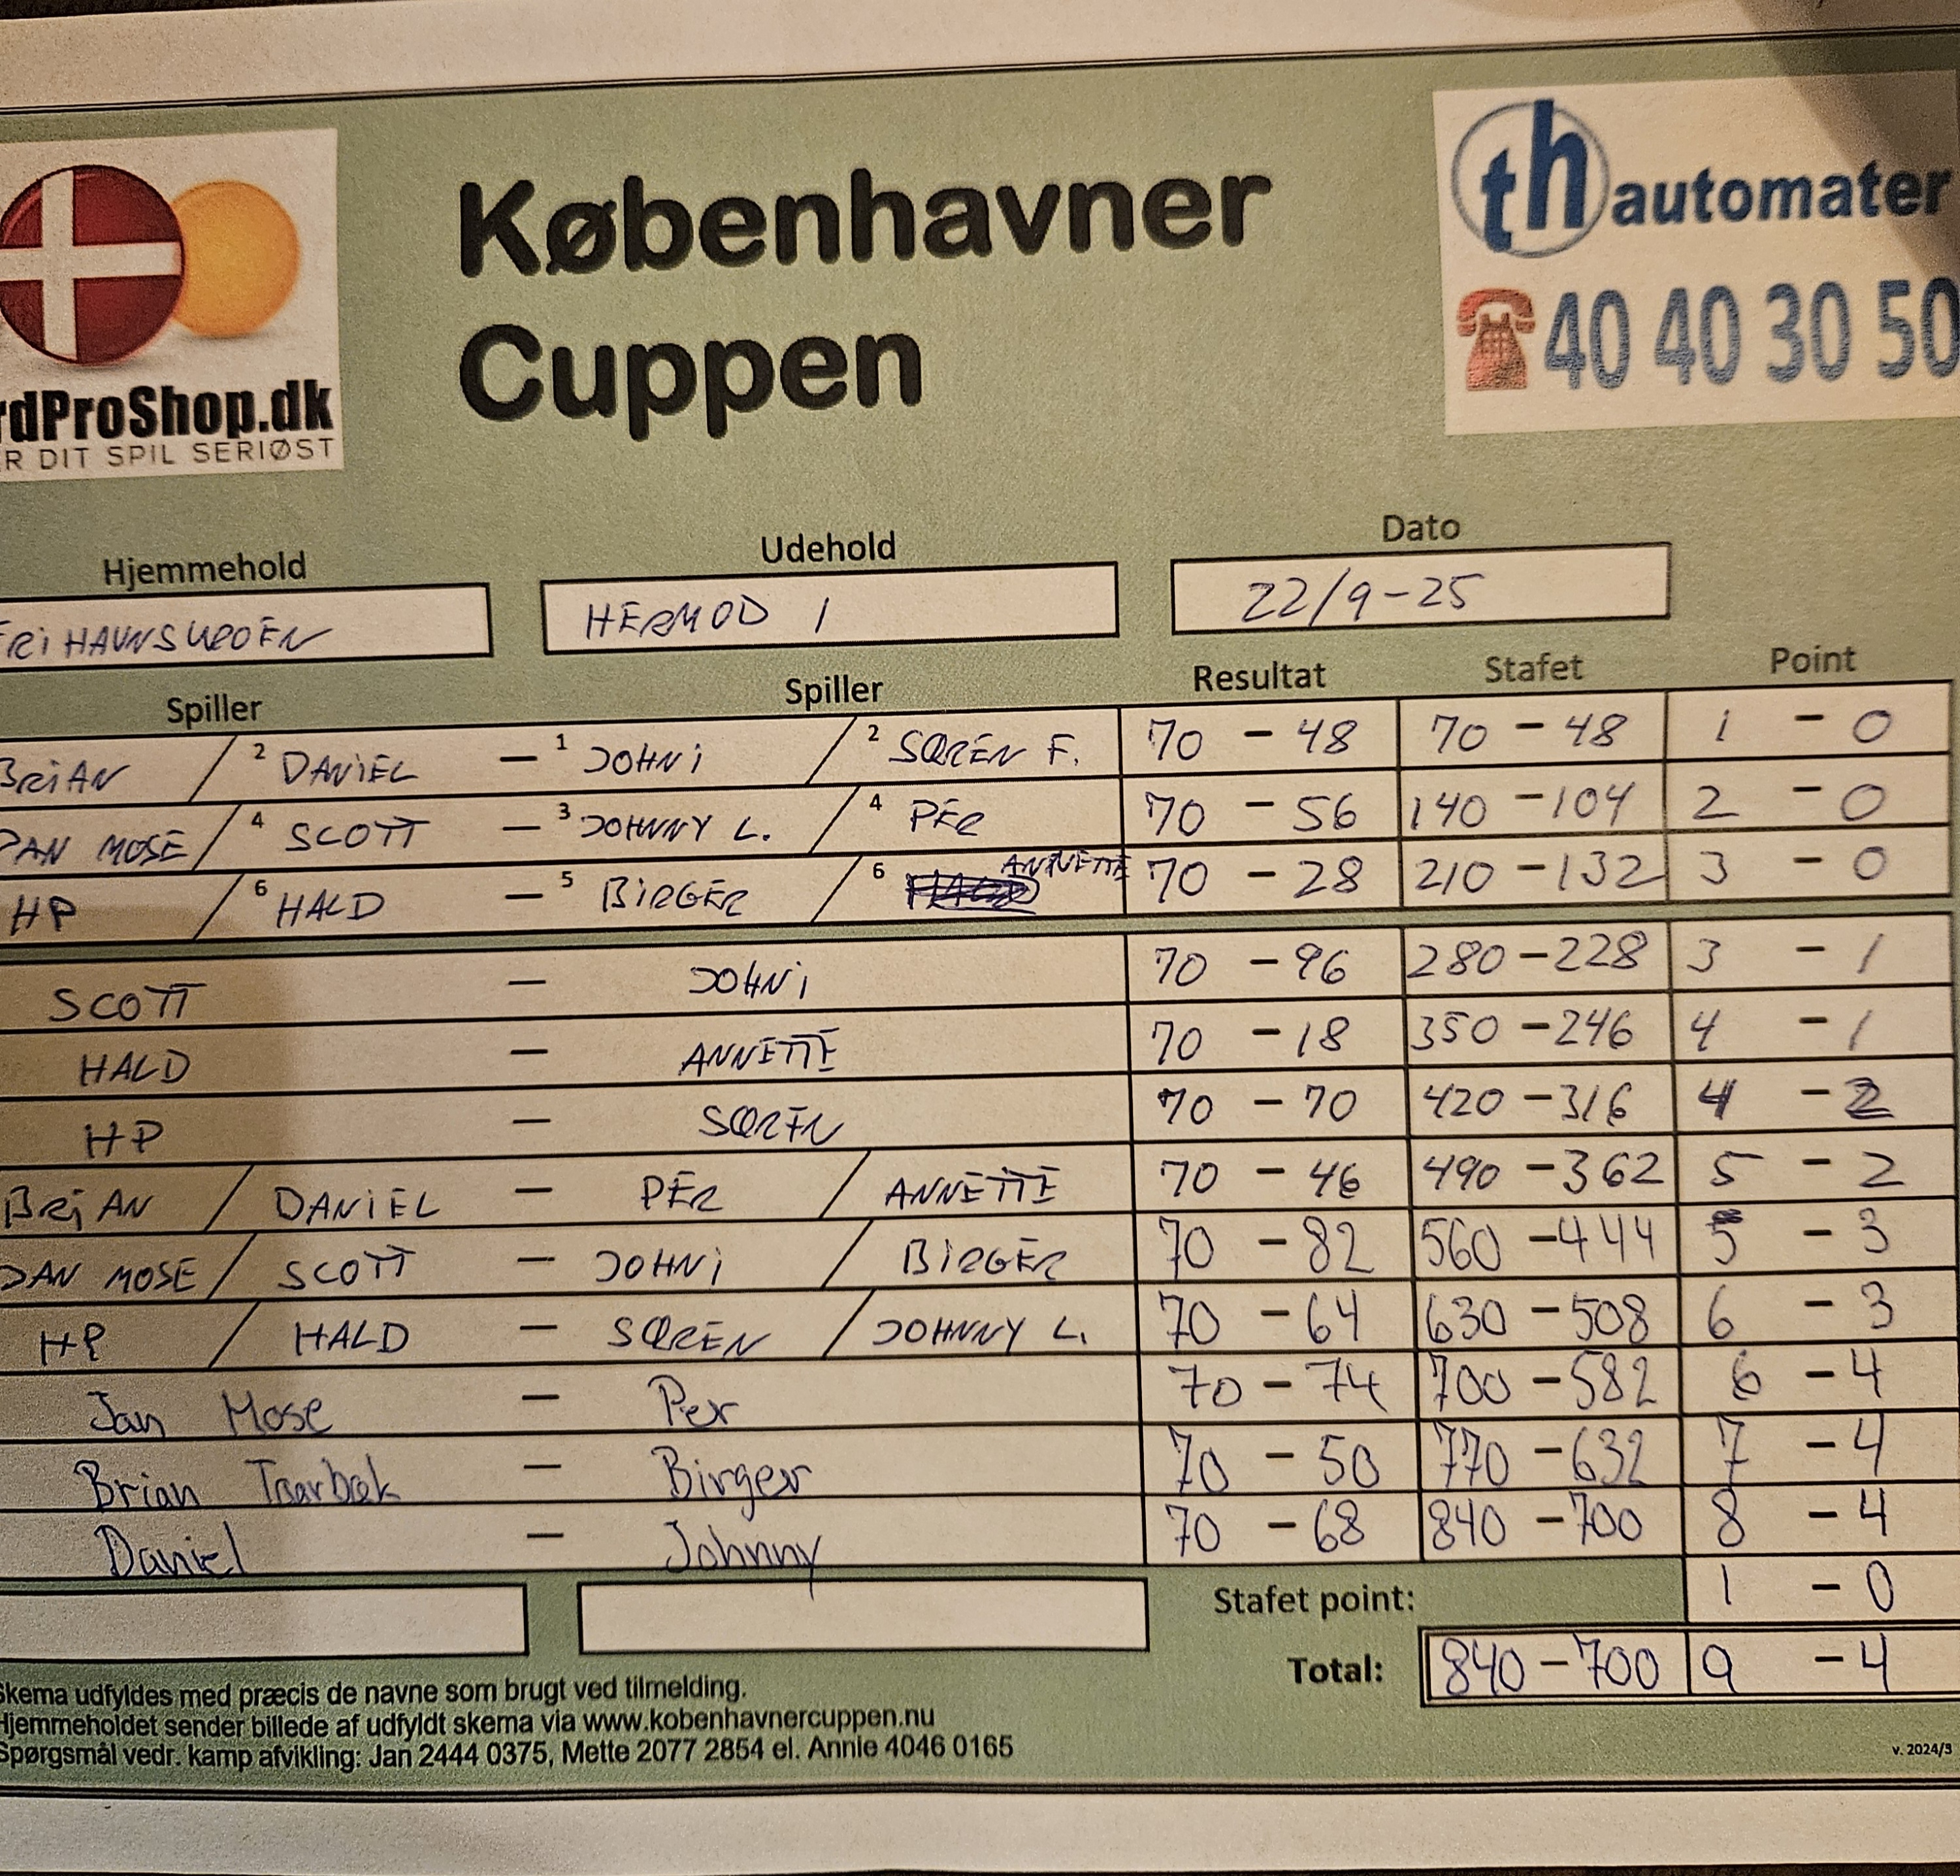 Københavner
Cuppen
th automater
40 40 30 50
rdProShop.dk
R DIT SPIL SERIØST
Hjemmehold Udehold Dato
HERMOD 1 22/9-25
Spiller Spiller Resultat Stafet Point
BRIAN / 2 DANIEL - 1 JOHNI / 2 SØREN F. 70 - 48 70 - 48 1 - 0
DAN MOSE / 4 SCOTT - 3 JOHNNY L. / 4 PER 70 - 56 140 - 104 2 - 0
HP / 6 HALD - 5 BIRGER / 6 ANNETTE 70 - 28 210 - 132 3 - 0
SCOTT - JOHNI 70 - 96 280 - 228 3 - 1
HALD - ANNETTE 70 - 18 350 - 246 4 - 1
HP - SØREN 70 - 70 420 - 316 4 - 2
BRIAN / DANIEL - PER / ANNETTE 70 - 46 490 - 362 5 - 2
DAN MOSE / SCOTT - JOHNI / BIRGER 70 - 82 560 - 444 5 - 3
HP / HALD - SØREN / JOHNNY L. 70 - 64 630 - 508 6 - 3
Jan Mose - Per 70 - 74 700 - 582 6 - 4
Brian - Birger 70 - 50 770 - 632 7 - 4
Daniel - Johnny 70 - 68 840 - 700 8 - 4
Stafet point: 1 - 0
Total: 840 - 700 9 - 4
skema udfyldes med præcis de navne som brugt ved tilmelding.
Hjemmeholdet sender billede af udfyldt skema via www.kobenhavnercuppen.nu
Spørgsmål vedr. kamp afvikling: Jan 2444 0375, Mette 2077 2854 el. Annie 4046 0165
v. 2024/3